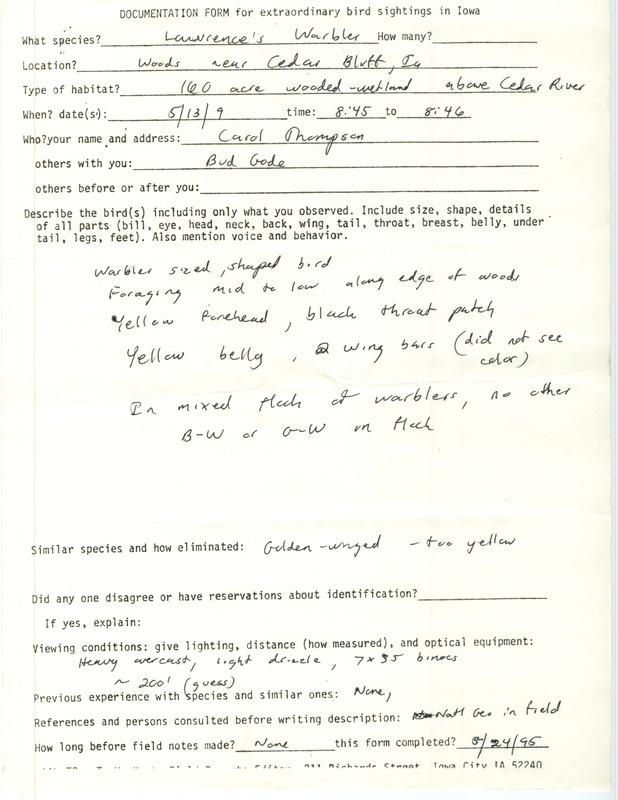 DOCUMENTATION FORM for extraordinary bird sightings in Iowa
What species? Lawrence's Warbler How many?
Location? Woods near Cedar Bluff, Ia
Type of habitat? 160 acre wooded-wetland above Cedar River
When? date(s): 5/13/9 time: 8:45 to 8:46
Who?your name and address: Carol Thompson
others with you: Bud Gode
others before or after you:
Describe the bird(s) including only what you observed. Include size, shape, details
of all parts (bill, eye, head, neck, back, wing, tail, throat, breast, belly, under
tail, legs, feet). Also mention voice and behavior.
Warbler sized, shaped bird
Foraging mid to low along edge of woods
Yellow forehead, black throat patch
Yellow belly, 2 wing bars (did not see
color)
In mixed flock of warblers, no other
B-W or G-W in flock
Similar species and how eliminated: Golden-winged - too yellow
Did any one disagree or have reservations about identification?
If yes, explain:
Viewing conditions: give lighting, distance (how measured), and optical equipment:
Heavy overcast, light drizzle, 7x35 binocs
~ 200' (guess)
Previous experience with species and similar ones: None,
References and persons consulted before writing description: Natl Geo in field
How long before field notes made? None this form completed? 5/24/95
Richards Street, Iowa City IA 52240